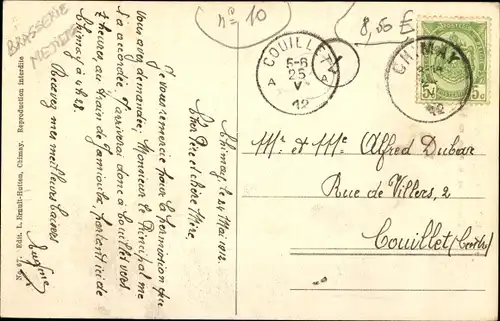 BRASSERIE
n=° 10
8,50 €
COUILLET
5-6
A 25 A
V
12
CHIMAY
12
5c 5c
Chimay, le 24 Mai 1912.
Cher Père et chère Mère,
Je vous remercie pour la permission que
vous avez demandée, Monsieur le Principal me
l'a accordée et j'arriverai donc à Couillet vers
7 heures, au train de Jamioulx, partant ici de
Chimay à 4h 28.
Recevez mes meilleurs baisers
Mr et Me Alfred Dubar
Rue de Villers, 2
Couillet
Edit. L. Erault-Hutten, Chimay. Reproduction interdite